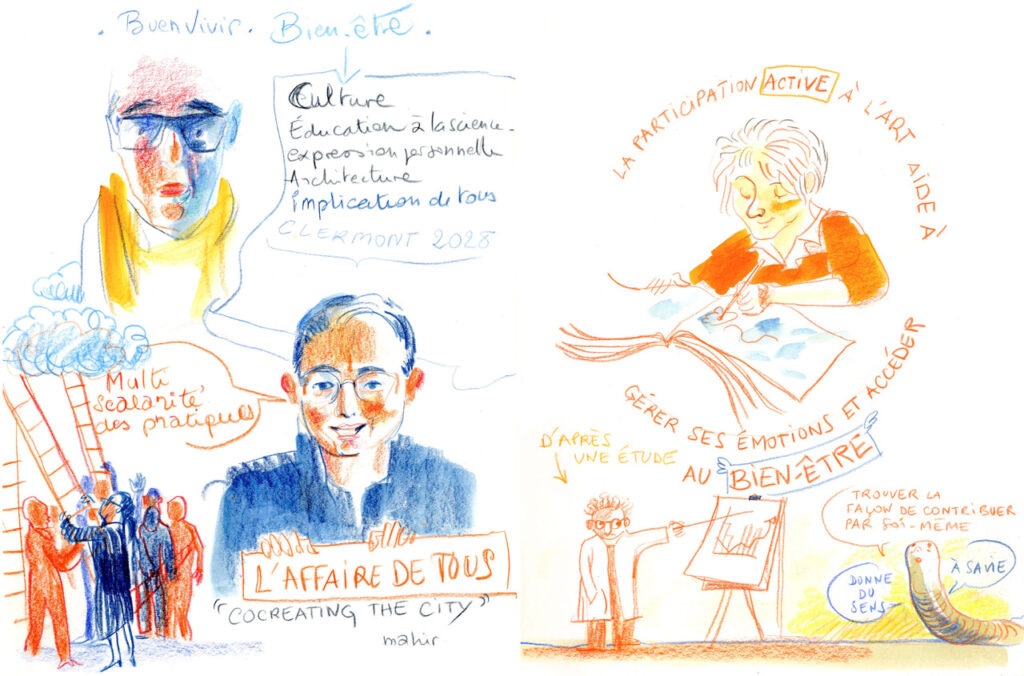 . Buen Vivir. Bien-être.
Culture
Éducation à la science.
expression personnelle
Architecture
implication de tous
CLERMONT 2028
Multi
scalarité
des pratiques
L'AFFAIRE DE TOUS
"COCREATING THE CITY"
mahir
LA PARTICIPATION ACTIVE À L'ART AIDE À
GÉRER SES ÉMOTIONS ET ACCÉDER
AU BIEN-ÊTRE
D'APRÈS
UNE ÉTUDE
TROUVER LA
FAÇON DE CONTRIBUER
PAR SOI-MÊME
DONNE
DU
SENS
À SA VIE